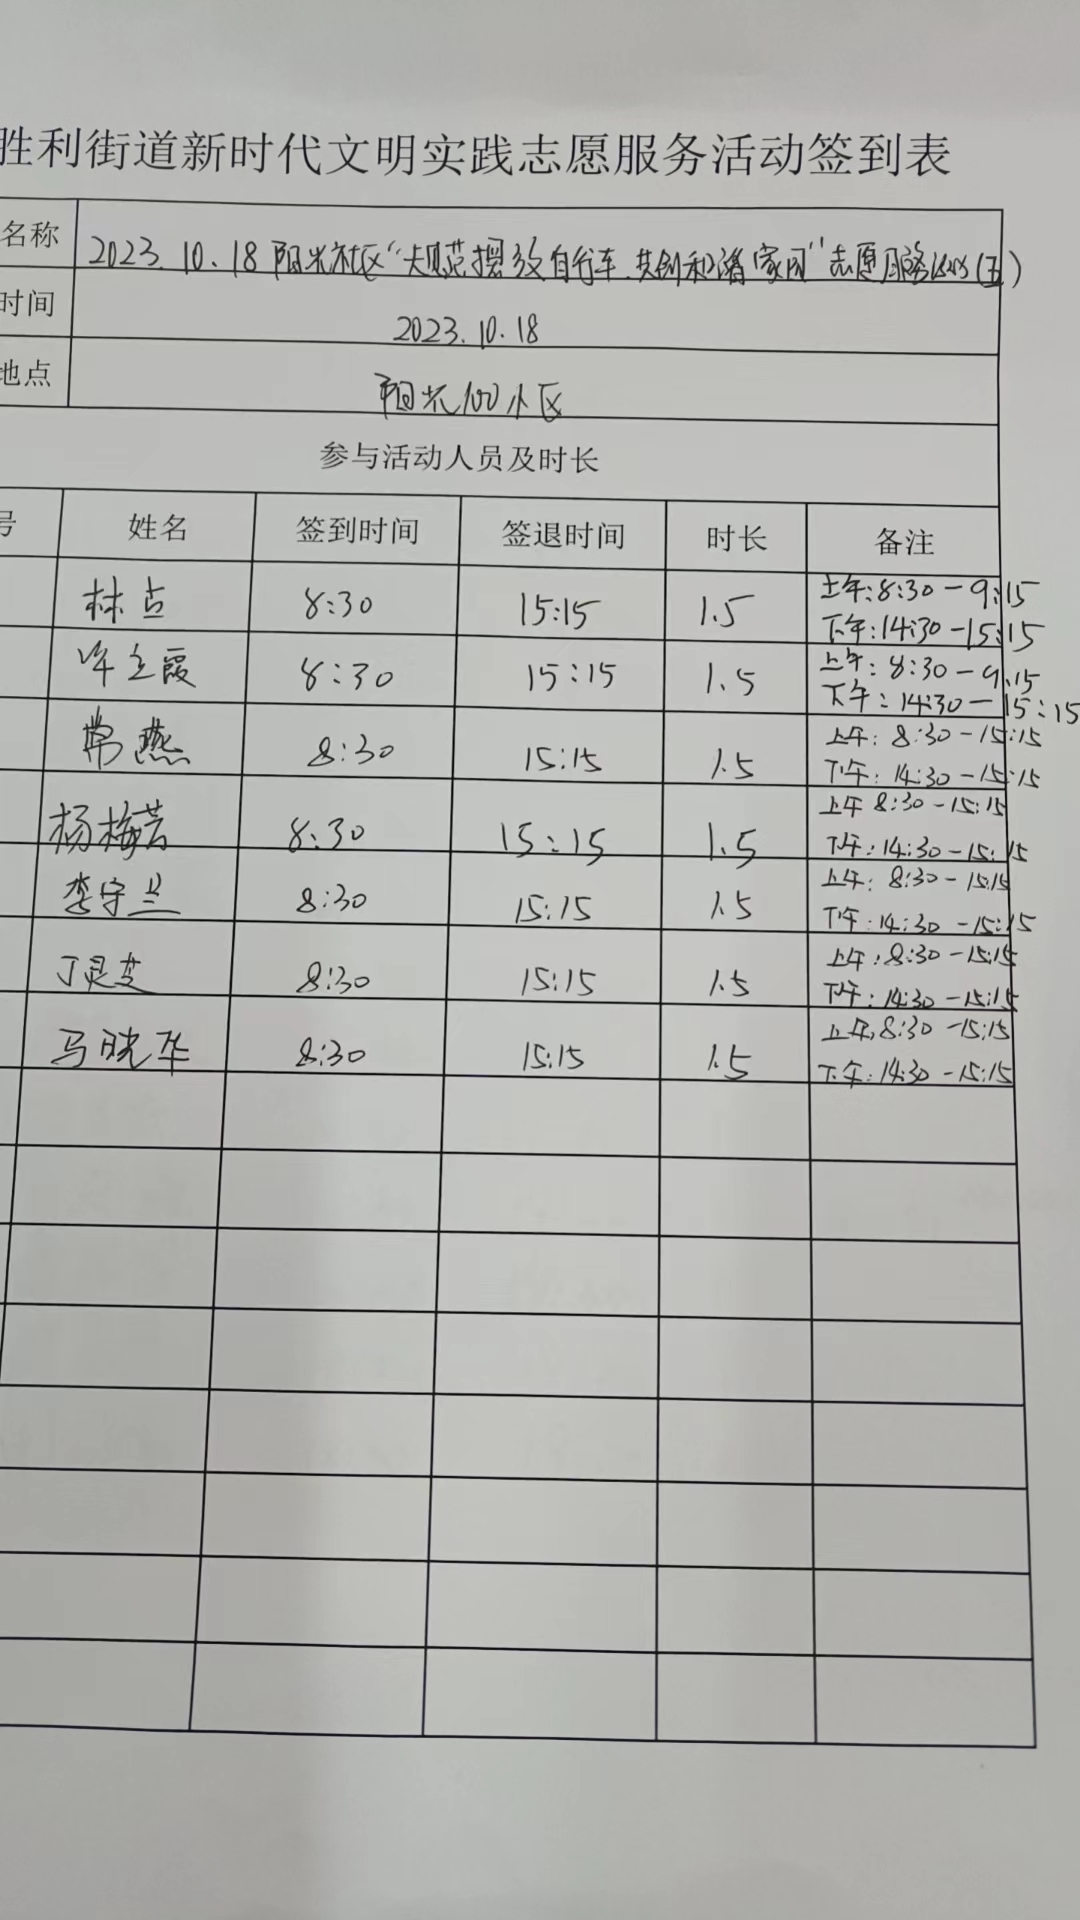 胜利街道新时代文明实践志愿服务活动签到表
名称 2023.10.18 阳光社区“大规范摆放自行车.共创和谐家园”志愿服务活动(五)
时间 2023.10.18
地点 阳光100小区
参与活动人员及时长
号 姓名 签到时间 签退时间 时长 备注
林占 8:30 15:15 1.5 上午:8:30-9:15
下午:14:30-15:15
立霞 8:30 15:15 1.5 上午:8:30-9:15
下午:14:30-15:15
常燕 8:30 15:15 1.5 上午:8:30-15:15
下午:14:30-15:15
杨梅芳 8:30 15:15 1.5 上午 8:30-15:15
下午:14:30-15:15
李守兰 8:30 15:15 1.5 上午:8:30-15:15
下午:14:30-15:15
丁灵芝 8:30 15:15 1.5 上午:8:30-15:15
下午:14:30-15:15
马晓华 8:30 15:15 1.5 上午:8:30-15:15
下午:14:30-15:15